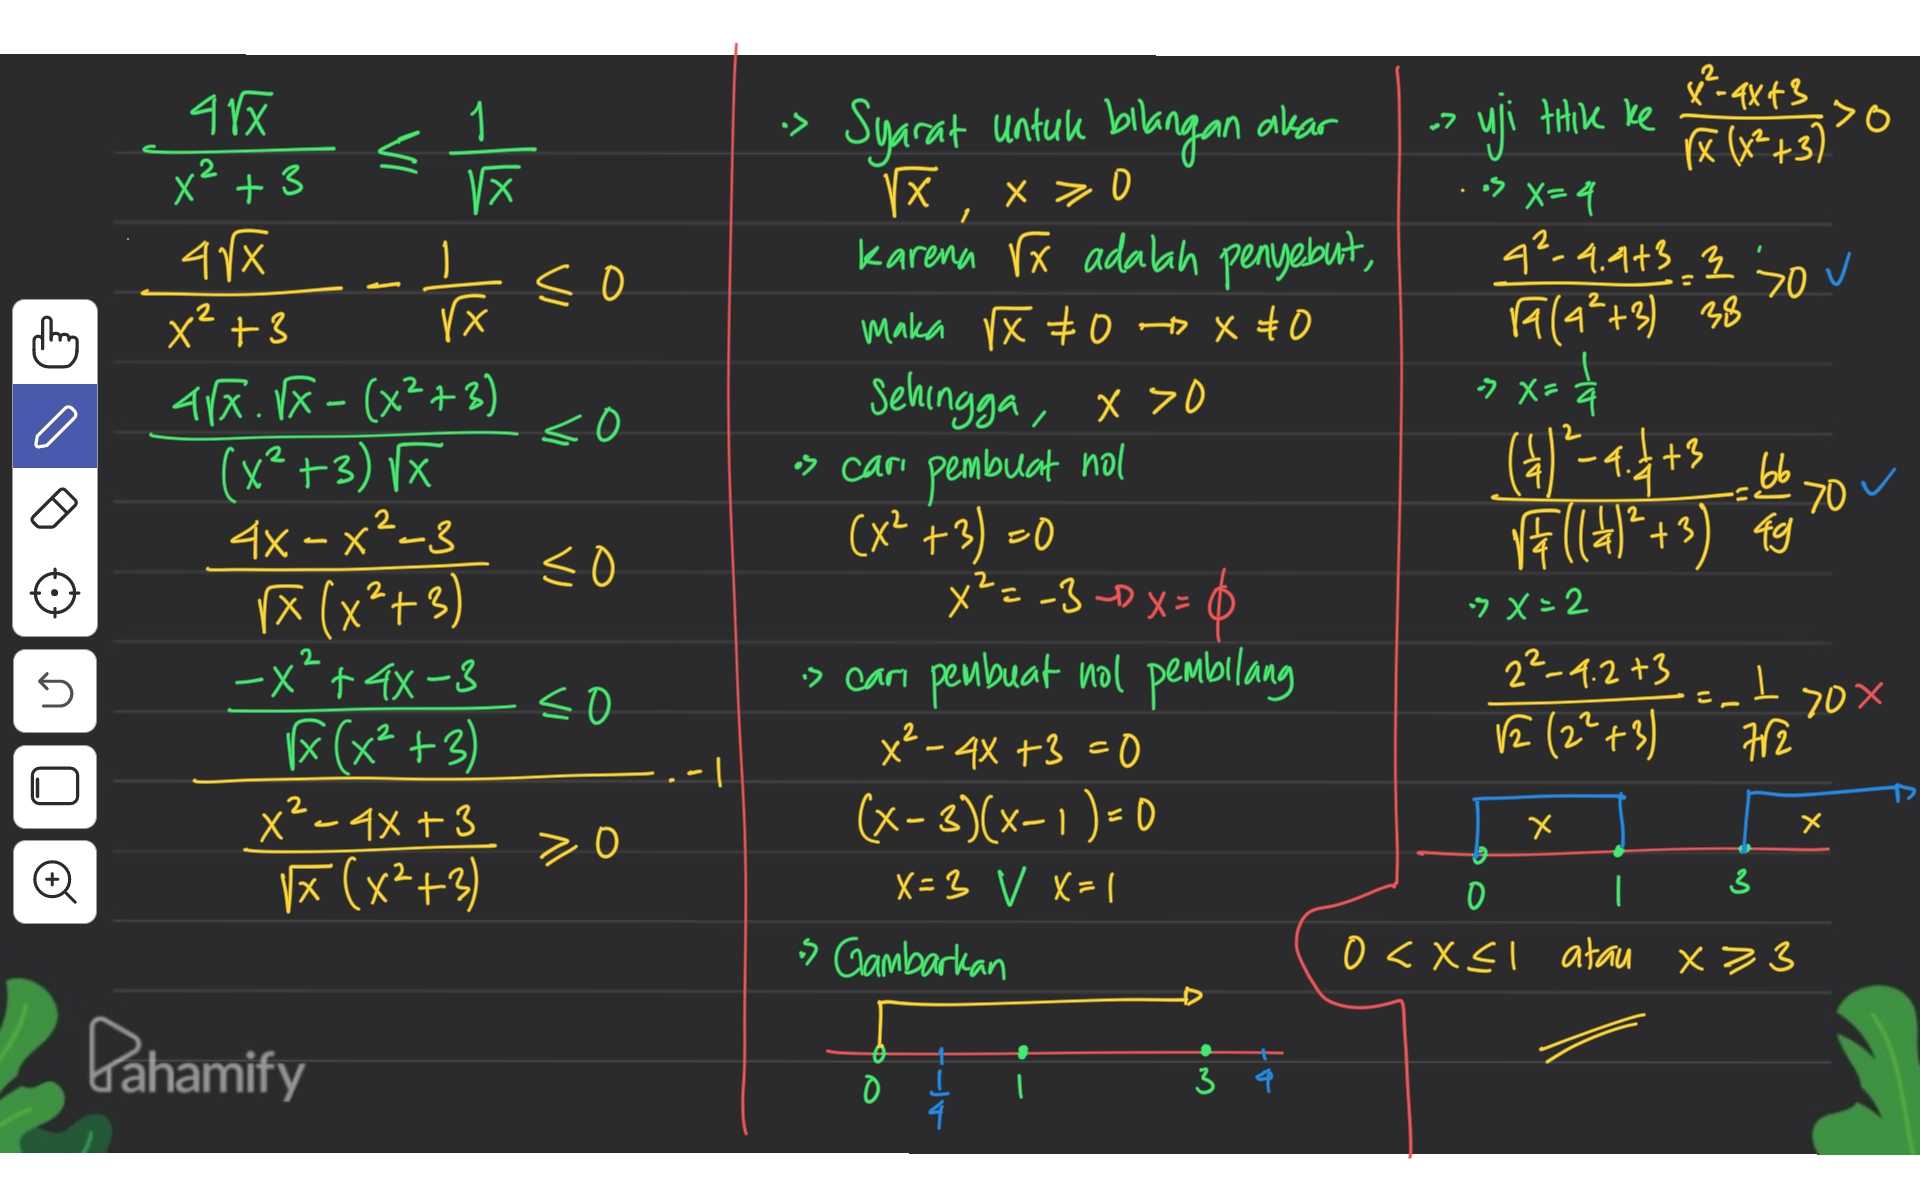 4√x / (x² + 3) ≤ 1 / √x
4√x / (x² + 3) − 1 / √x ≤ 0
(4√x . √x − (x² + 3)) / ((x² + 3) √x) ≤ 0
(4x − x² − 3) / (√x (x² + 3)) ≤ 0
(−x² + 4x − 3) / (√x (x² + 3)) ≤ 0
. −1
(x² − 4x + 3) / (√x (x² + 3)) ≥ 0
Pahamify
Syarat untuk bilangan akar
√x , x ≥ 0
karena √x adalah penyebut,
maka √x ≠ 0 → x ≠ 0
Sehingga, x > 0
cari pembuat nol
(x² + 3) = 0
x² = −3 → x = ∅
cari penbuat nol pembilang
x² − 4x + 3 = 0
(x − 3)(x − 1) = 0
x = 3 V x = 1
Gambarkan
0 1/4 1 3 4
uji titik ke (x² − 4x + 3) / (√x (x² + 3)) > 0
x = 4
(4² − 4.4 + 3) / (√4 (4² + 3)) = 3/38 > 0 ✓
x = 1/4
((1/4)² − 4.1/4 + 3) / (√1/4 ((1/4)² + 3)) = 66/49 > 0 ✓
x = 2
(2² − 4.2 + 3) / (√2 (2² + 3)) = − 1 / 7√2 > 0 ×
x x
0 1 3
0 < x ≤ 1 atau x ≥ 3